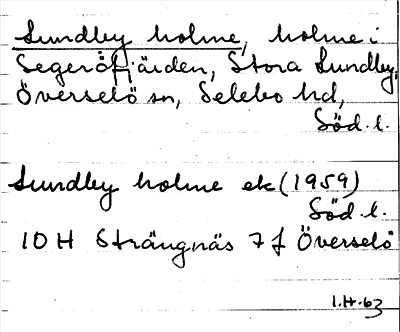 Sundby holme, holme i
Segeröfjärden, Stora Sundby,
Överselö sn, Selebo hd,
Söd. l.
Sundby holme ek (1959)
Söd. l.
10 H Strängnäs 7 f Överselö
I.H.63